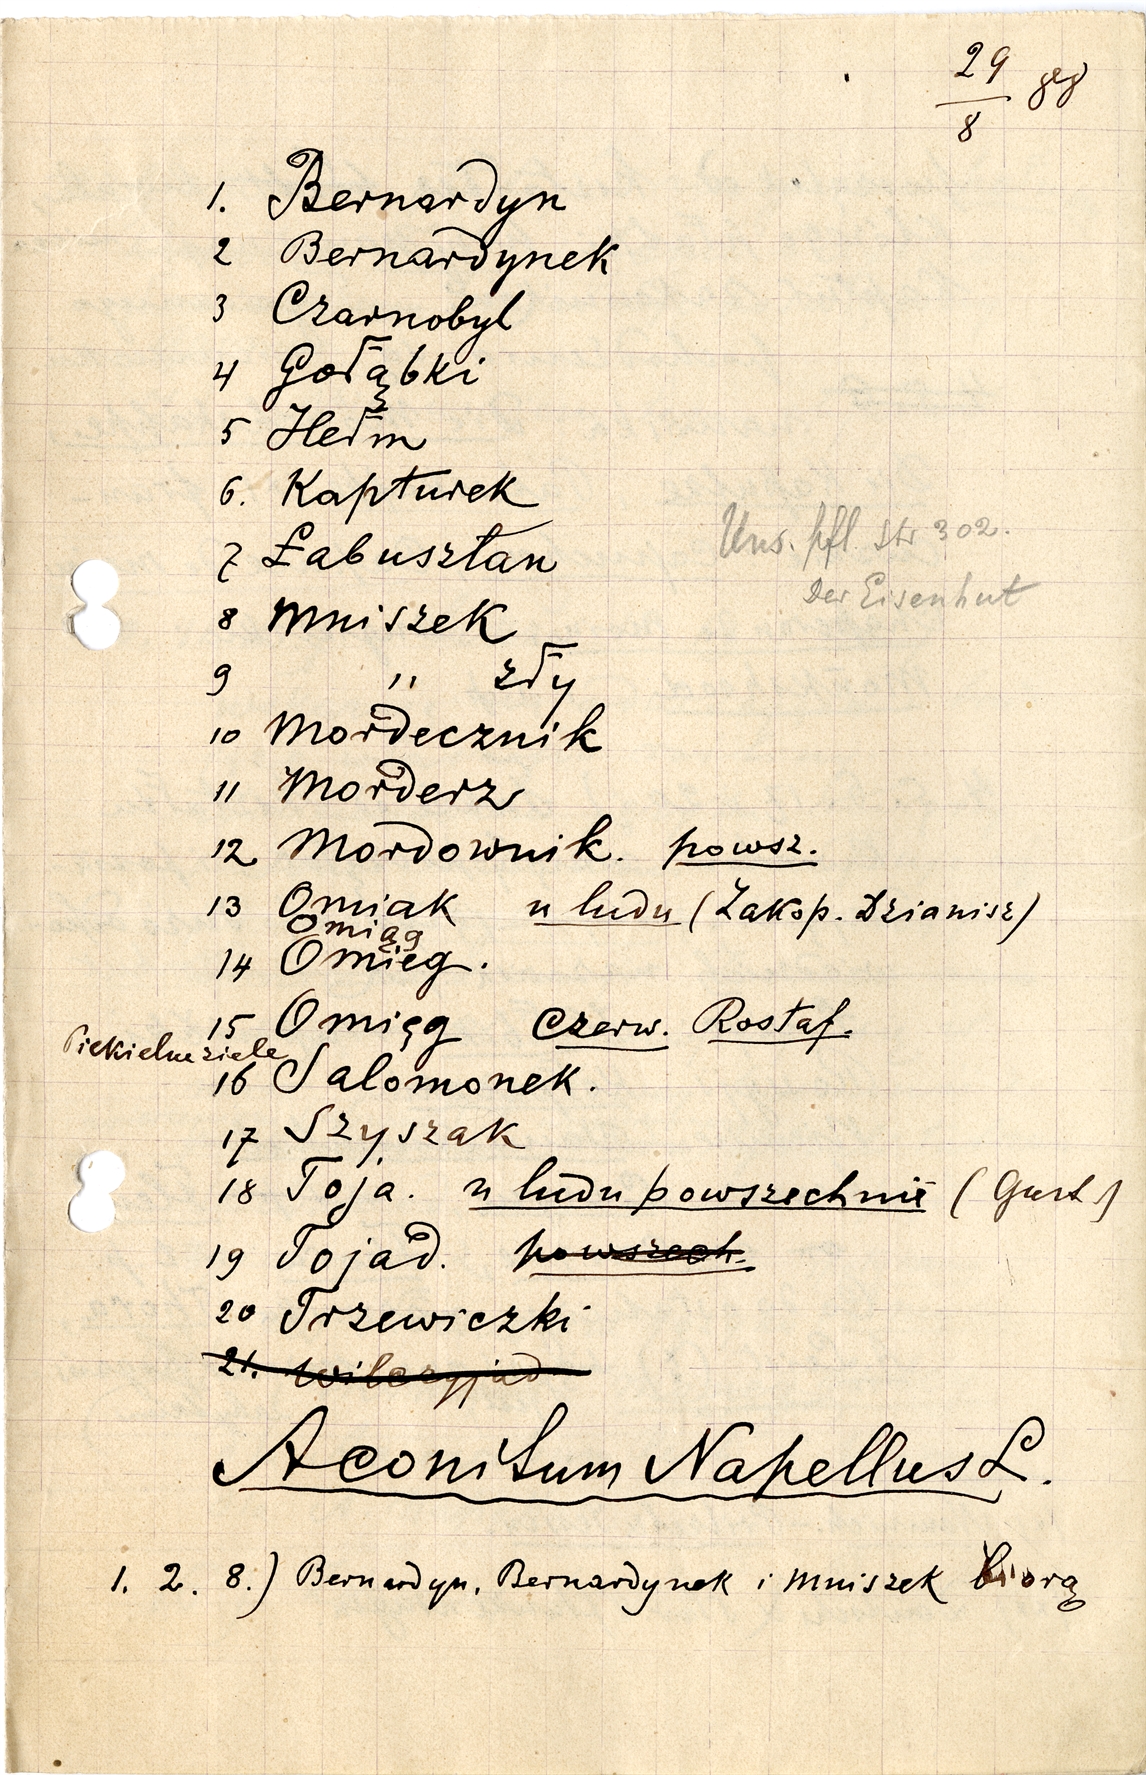 29
8
1. Bernardyn
2 Bernardynek
3 Czarnobyl
4 Gołąbki
5 Hełm
6. Kapturek
7 Łabusztan
Uns. pfl. Str 302.
Der Eisenhut
8 Mniszek
9 " zły
10 Mordecznik
11 Morderz
12 Mordownik. powsz.
13 Omiak u ludu (Zakop. Dzianisz)
Omiąg
14 Omieg.
15 Omięg czerw. Rostaf.
Piekielne ziele
16 Salomonek.
17 Szyszak
18 Toja. u ludu powszechnie (Gust.)
19 Tojad. powszech.
20 Trzewiczki
21. Wilczyjad
Aconitum Napellus L.
1. 2. 8.) Bernardyn, Bernardynek i Mniszek biorą